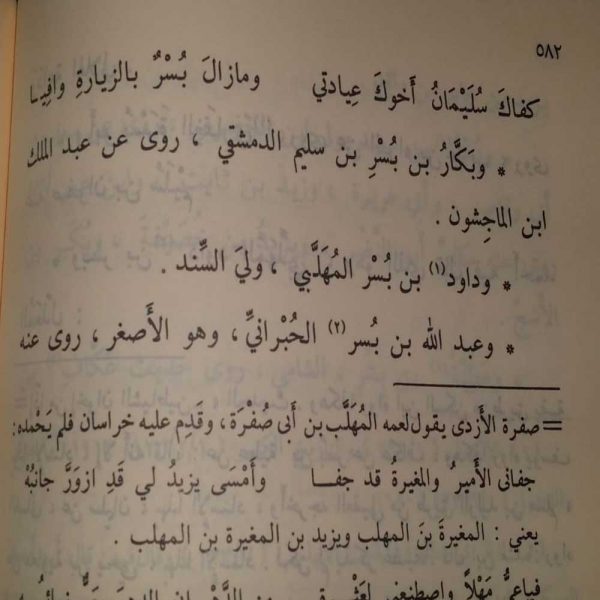 ٥٨٢
كفاكَ سُلَيْمَانُ أخوكَ عِيادتي ومازالَ بُسْرٌ بالزيارةِ وافِيا
* وبَكَّارُ بن بُسْرِ بن سليم الدمشقي ، روى عن عبد الملك
ابن الماجِشون .
* وداود(١) بن بُسْر المُهَلَّبي ، ولي السِّند .
* وعبد الله بن بُسر(٢) الحُبْرانيِّ، وهو الأَصغر ، روى عنه
= صفرة الأزدى يقول لعمه المُهَلَّب بن أبى صُفْرَة، وقَدِم عليه خراسان فلم يَحْمده:
جفانى الأَميرُ والمُغيرة قد جفا وأَمْسَى يزيدُ لي قَدِ ازورَّ جانبُهْ
يعني : المغيرةَ بنَ المهلب ويزيد بن المغيرة بن المهلب .
فياعَمُّ مَهْلاً واصطنعني